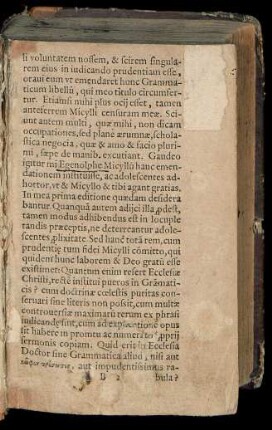 si voluntatem nossem, & scirem singula-
rem eius in iudicando prudentiam esse,
oraui eum vt emendaret hunc Gramma-
ticum libellū, qui meo titulo circumfer-
tur. Etiamsi mihi plus ocij esset, tamen
anteferrem Micylli censuram meæ. Sci-
unt autem multi, quæ mihi, non dicam
occupationes, sed planè ærumnæ, schola-
stica negocia, quæ & amo & facio pluri-
mi, sæpe de manib. excutiant. Gaudeo
igitur mi Egenolphe Micyllū hanc emen-
dationem instituisse, ac adolescentes ad-
hortor, vt & Micyllo & tibi agant gratias.
In mea prima editione quædam desidera
bantur. Quanquā autem adijci illa, pdest,
tamen modus adhibendus est in locuple
tandis præceptis, ne deterreantur adole-
scentes plixitate. Sed hanc totā rem, cum
prudentię tum fidei Micylli cōmitto, qui
quidem hunc laborem & Deo gratū esse
existimet: Quantum enim refert Ecclesiæ
Christi, rectè institui pueros in Grāmati-
cis? cum doctrinæ cœlestis puritas conser-
uari sine literis non possit, cum multæ
controuersiæ maximarū rerum ex phrasi
iudicandæ sint, cum ad explicationē opus
sit habere in promtu ac numerato pprij
sermonis copiam. Quid erit in Ecclesia
Doctor sine Grammatica aliud, nisi aut
aut impudentissimus ra-
D 2 bula?